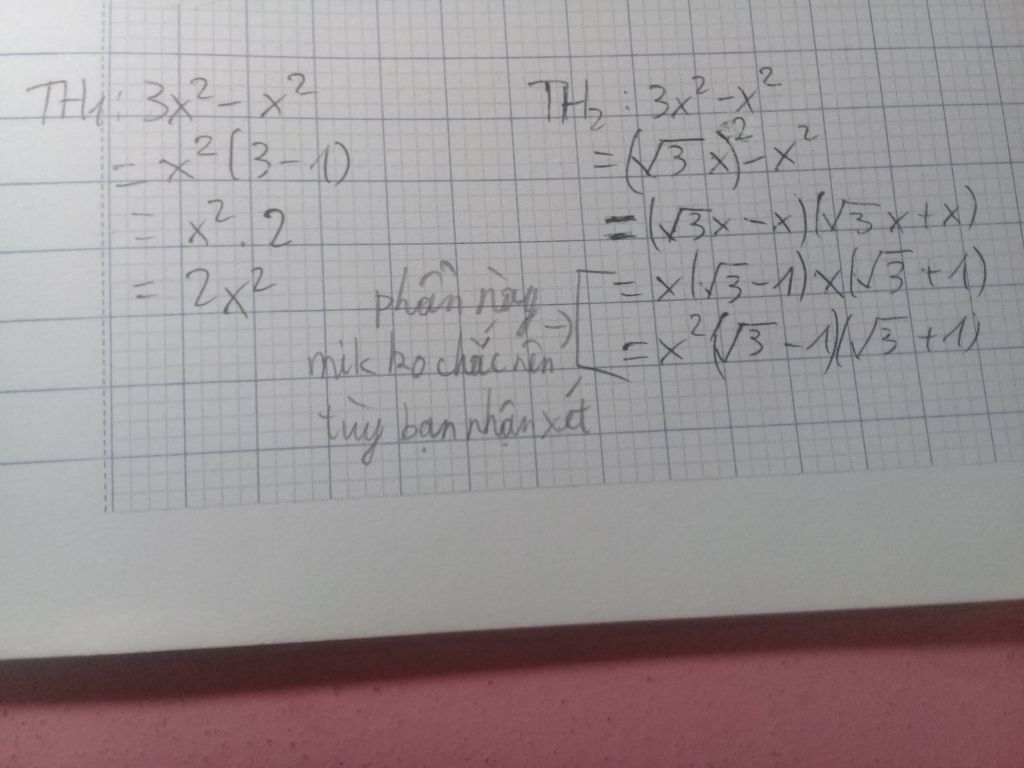 TH1: 3x² - x²
= x² (3 - 1)
= x² . 2
= 2x²
TH2 : 3x² - x²
= (√3 x)² - x²
= (√3x - x)(√3x + x)
= x(√3 - 1)x(√3 + 1)
= x²(√3 - 1)(√3 + 1)
phần này →
mik ko chắc nên
tùy bạn nhận xét